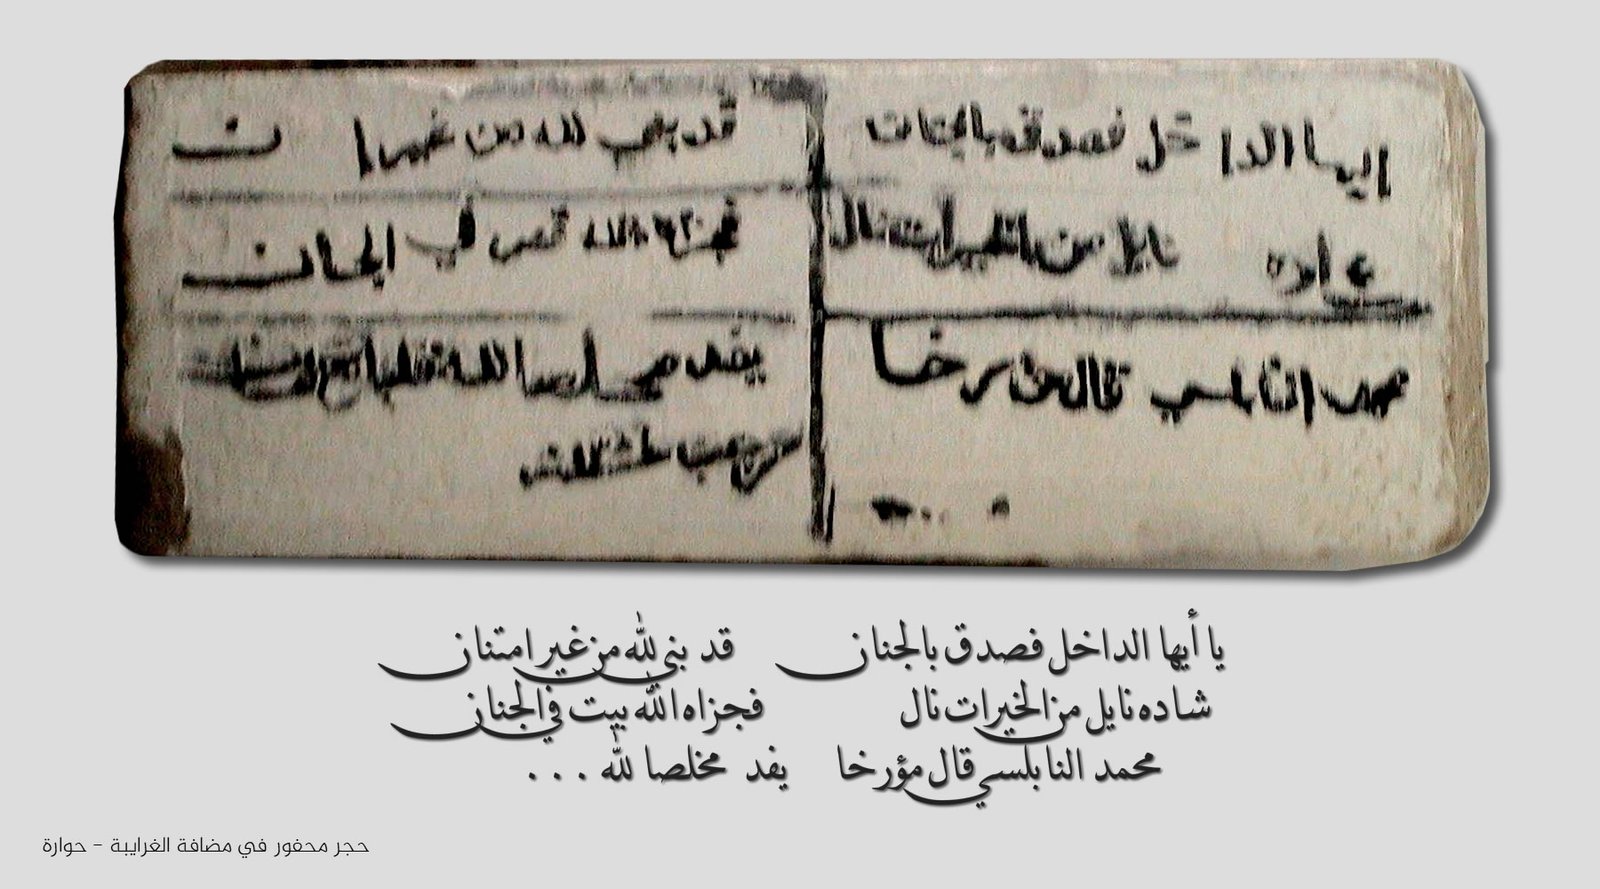 ايها الداخل فصدق بالجنان قد بني لله من غير ا ن
شاده نايل من الخيرات نال فجزاه الله في الجنان
محمد النابلسي قال مؤرخا يفد
يا أيها الداخل فصدق بالجنان قد بني لله من غير امتنان
شاده نايل من الخيرات نال فجزاه الله بيت في الجنان
محمد النابلسي قال مؤرخا يفد مخلصا لله ...
حجر محفور في مضافة الغرايبة - حوارة